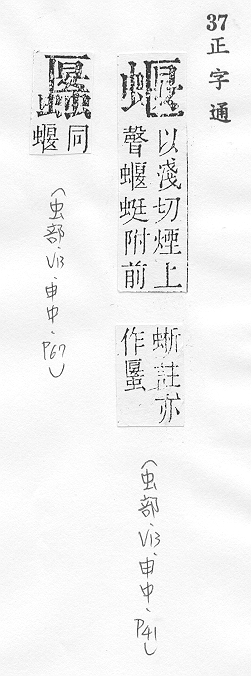 37
正字通
蝘
以淺切煙上
聲蝘蜓附前
蜥註亦
作
(虫部、V13、申中、P41)
同
蝘
(虫部、V13、申中、P67)